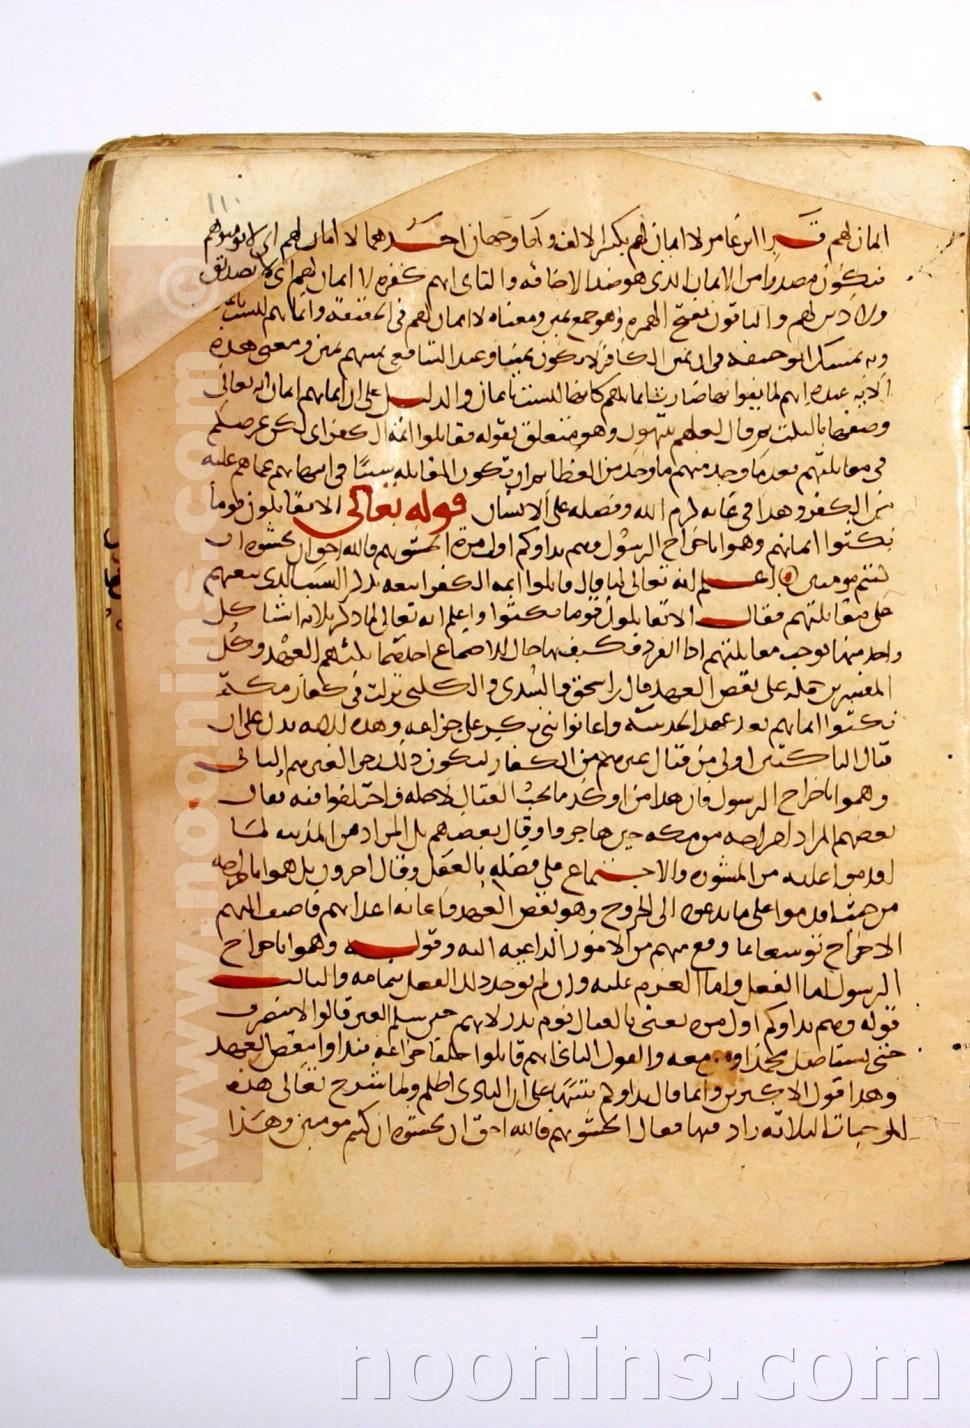 ايمان لهم قرا ابن عامر لا ايمان لهم بكسر الالف ولها وجهان احدهما لا امان لهم اي لا تومنوهم
فيكون مصدرا من الايمان الذي هو ضد الاخافه والثاني انهم كفره لا ايمان لهم اي لا تصديق
ولا دين لهم والباقون بفتح الهمزه وهو جمع يمين ومعناه لا ايمان لهم في الحقيقه وايمانهم ليست بايمان
وبه تمسك ابو حنيفه في ان يمين الكافر لا يكون يمينا وعند الشافعي يمينهم يمين ومعنى هذه
الايه عنده انهم لما لم يفوا بها صارت ايمانهم كانها ليست بايمان والدليل على ان ايمانهم ايمان انه تعالى
وصفها بالنكث ثم قال لعلهم ينتهون وهو متعلق بقوله فقاتلوا ائمة الكفر اي ليكن غرضكم
في مقاتلتهم بعد ما وجد منهم ما وجد من العظايم ان تكون المقاتله سببا في انتهائهم عما هم عليه
من الكفر وهذا في غايه كرم الله وفضله على الانسان قوله تعالى الا تقاتلون قوما
نكثوا ايمانهم وهموا باخراج الرسول وهم بداوكم اول مرة اتخشونهم فالله احق ان تخشوه ان
كنتم مومنين اعلم انه تعالى لما قال قاتلوا ائمة الكفر اتبعه بذكر السبب الذي يبعثهم
على مقاتلتهم فقال الا تقاتلون قوما نكثوا واعلم انه تعالى لما ذكر ثلاثة اشيا كل
واحد منها يوجب مقاتلتهم اذا انفرد فكيف بها حال الاجتماع احدها نكثهم العهد وكل
المفسرين حمله على نقض العهد قال ابن اسحق والسدي والكلبي نزلت في كفار مكة
نكثوا ايمانهم بعد عهد الحديبية واعانوا بني بكر على خزاعه وهذه الايه تدل على ان
قتال الناكثين اولى من قتال غيرهم من الكفار ليكون ذلك زجرا لغيرهم الثاني
وهموا باخراج الرسول فان هذا من اوكد ما يجب القتال لاجله واختلفوا فيه فقال
بعضهم المراد اخراجه من مكه حين هاجر وقال بعضهم بل المراد من المدينه لما
اقدموا عليه من المشوره والاجتماع على قصده بالقتل وقال اخرون بل هموا باخراجه
من حيث اقدموا على ما يدعوه الى الخروج وهو نقض العهد واعانه اعدائهم فاضيف اليهم
الاخراج توسعا لما وقع منهم من الامور الداعيه اليه وقوله وهموا باخراج
الرسول اما الفعل واما العزم عليه وان لم يوجد ذلك الفعل بتمامه والثالث
قوله وهم بداوكم اول مرة يعني بالقتال يوم بدر لانهم حين سلم العير قالوا لا ننصرف
حتى نستاصل محمدا ومن معه والقول الثاني انهم قاتلوا حلفا خزاعه فبداوا بنقض العهد
وهذا قول الاكثرين وانما قال بداوكم تنبيها على ان البادي اظلم ولما شرح تعالى هذه
الموجبات الثلاثه زاد فيها فقال اتخشونهم فالله احق ان تخشوه ان كنتم مومنين وهذا
© www.noonins.com
noonins.com